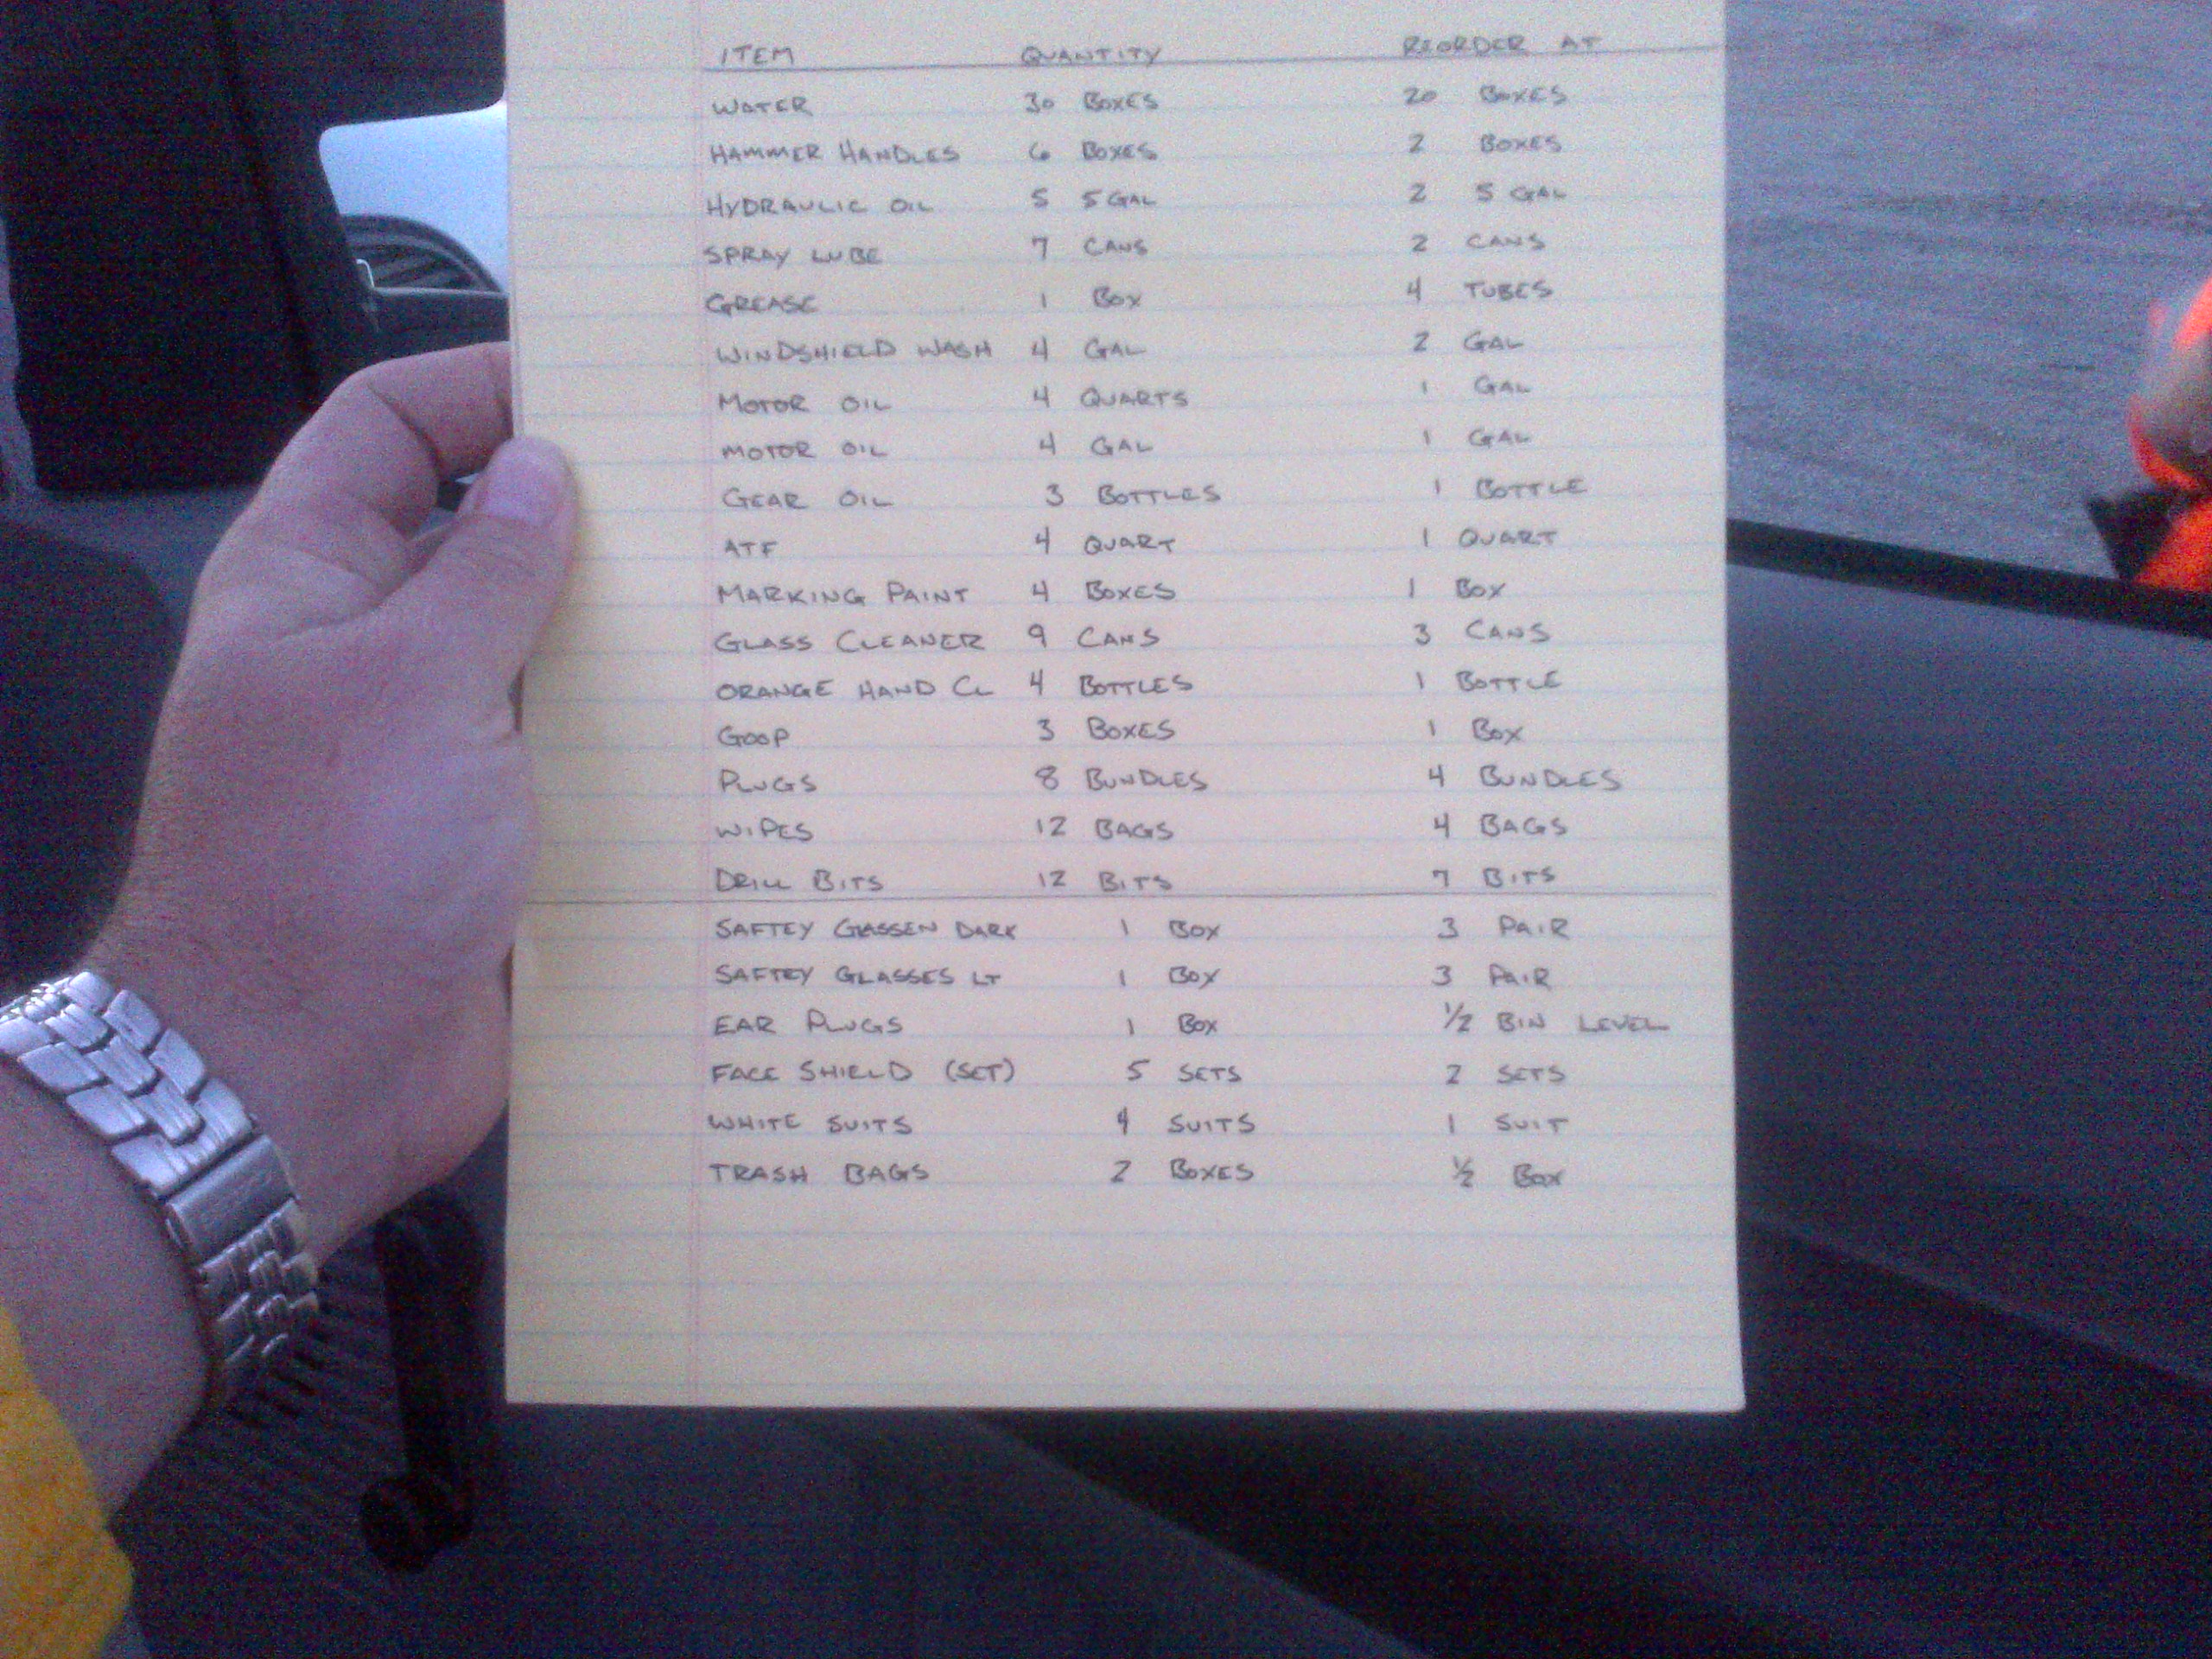 ITEM QUANTITY REORDER AT
WATER 30 BOXES 20 BOXES
HAMMER HANDLES 6 BOXES 2 BOXES
HYDRAULIC OIL 5 5 GAL 2 5 GAL
SPRAY LUBE 7 CANS 2 CANS
GREASE 1 BOX 4 TUBES
WINDSHIELD WASH 4 GAL 2 GAL
MOTOR OIL 4 QUARTS 1 GAL
MOTOR OIL 4 GAL 1 GAL
GEAR OIL 3 BOTTLES 1 BOTTLE
ATF 4 QUART 1 QUART
MARKING PAINT 4 BOXES 1 BOX
GLASS CLEANER 9 CANS 3 CANS
ORANGE HAND CL 4 BOTTLES 1 BOTTLE
GOOP 3 BOXES 1 BOX
PLUGS 8 BUNDLES 4 BUNDLES
WIPES 12 BAGS 4 BAGS
DRILL BITS 12 BITS 7 BITS
SAFTEY GLASSEN DARK 1 BOX 3 PAIR
SAFTEY GLASSES LT 1 BOX 3 PAIR
EAR PLUGS 1 BOX 1/2 BIN LEVEL
FACE SHIELD (SET) 5 SETS 2 SETS
WHITE SUITS 4 SUITS 1 SUIT
TRASH BAGS 2 BOXES 1/2 BOX